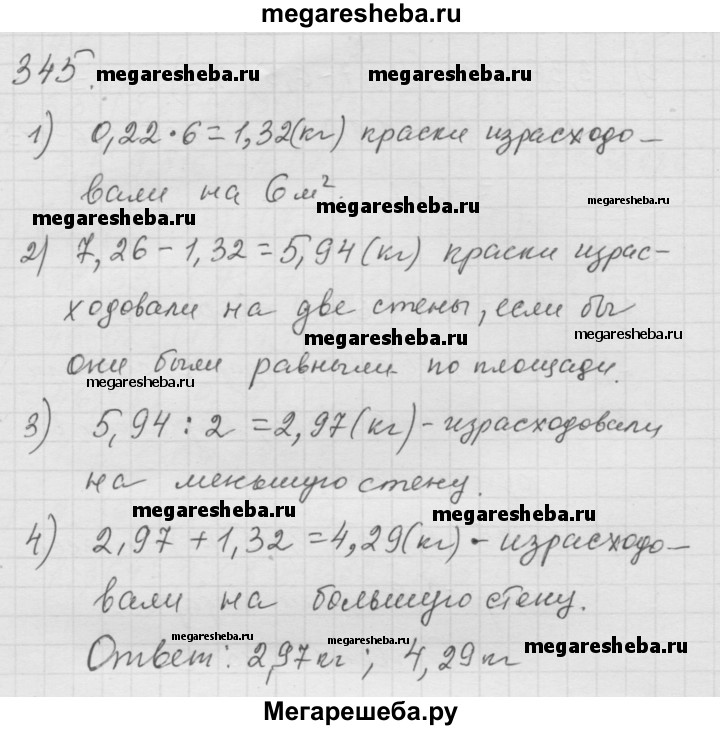 megaresheba.ru
345.
megaresheba.ru megaresheba.ru
1) 0,22·6=1,32(кг) краски израсходо-
вали на 6м².
megaresheba.ru megaresheba.ru megaresheba.ru
2) 7,26-1,32=5,94(кг) краски израс-
ходовали на две стены, если бы
megaresheba.ru megaresheba.ru
они были равными по площади.
megaresheba.ru
3) 5,94:2=2,97(кг)-израсходовали
на меньшую стену.
megaresheba.ru megaresheba.ru
4) 2,97+1,32=4,29(кг)-израсходо-
вали на большую стену.
megaresheba.ru megaresheba.ru megaresheba.ru
Ответ: 2,97кг; 4,29кг
Мегарешеба.ру